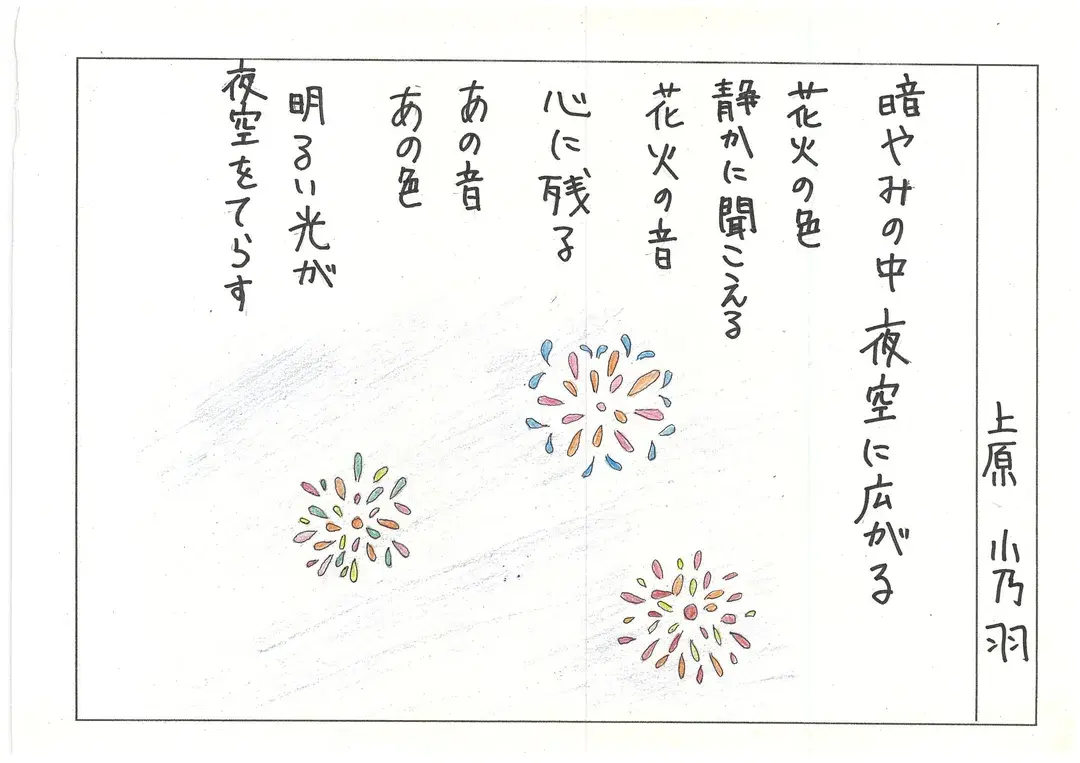 上原 小乃羽
暗やみの中 夜空に広がる
花火の色
静かに聞こえる
花火の音
心に残る
あの音
あの色
明るい光が
夜空をてらす